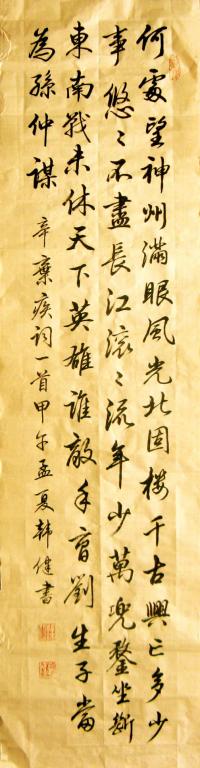 何處望神州滿眼風光北固樓千古興亡多少
事悠〻不盡長江滾〻流年少萬兜鍪坐斷
東南戰未休天下英雄誰敵手曹劉生子當
為孫仲謀 辛棄疾詞一首甲午孟夏韓健書